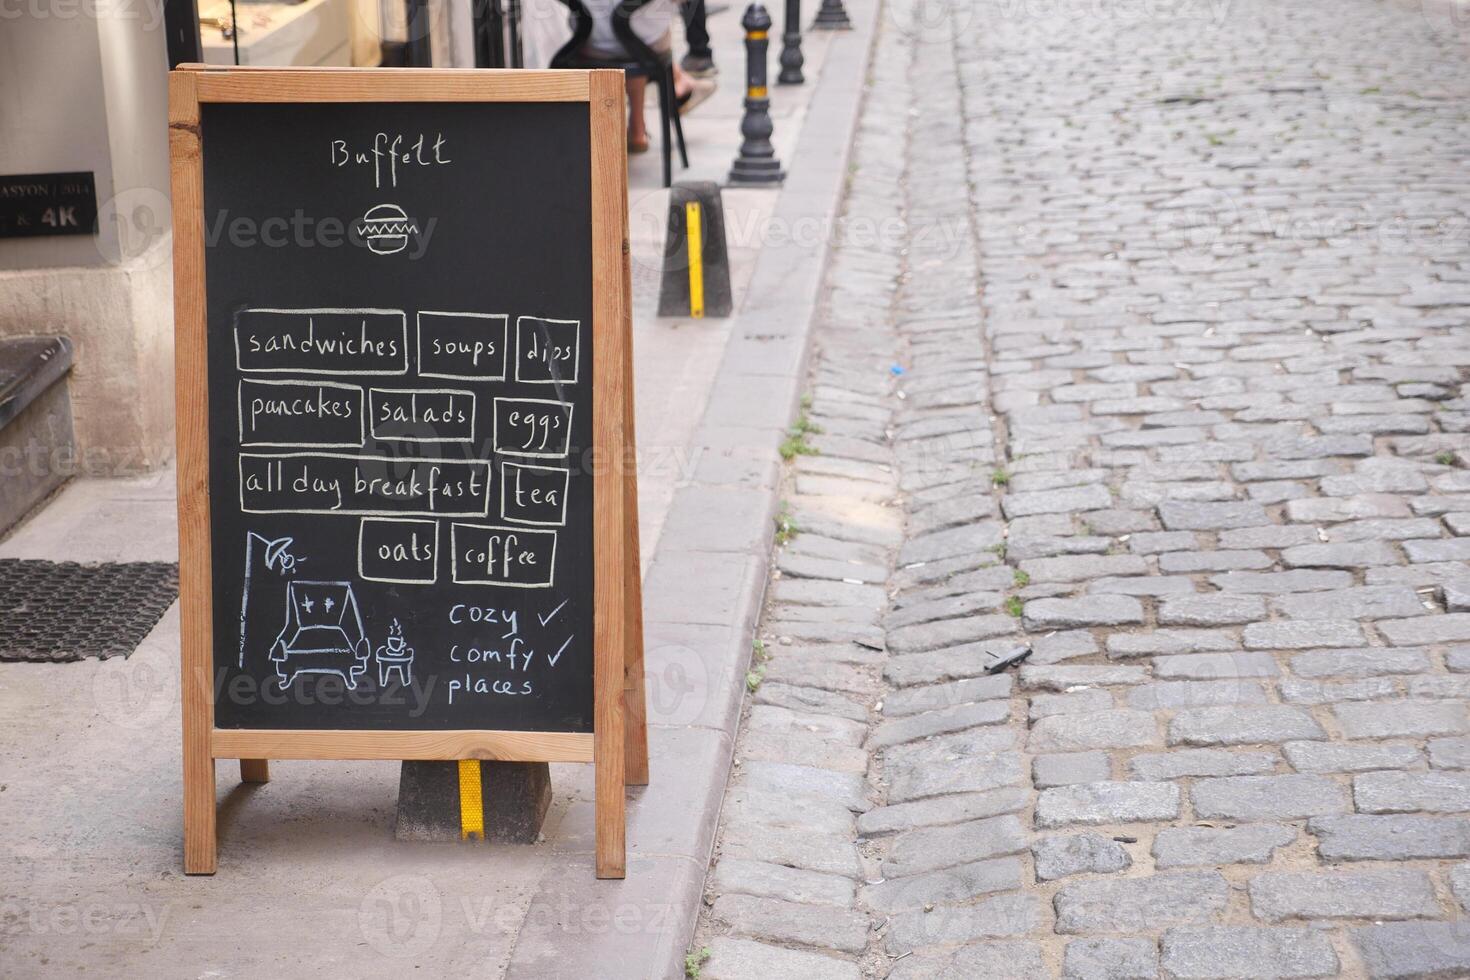 Buffett
sandwiches soups dips
pancakes salads eggs
all day breakfast tea
oats coffee
cozy ✓
comfy ✓
places
ASYON / 2014
& 4K
Vecteezy